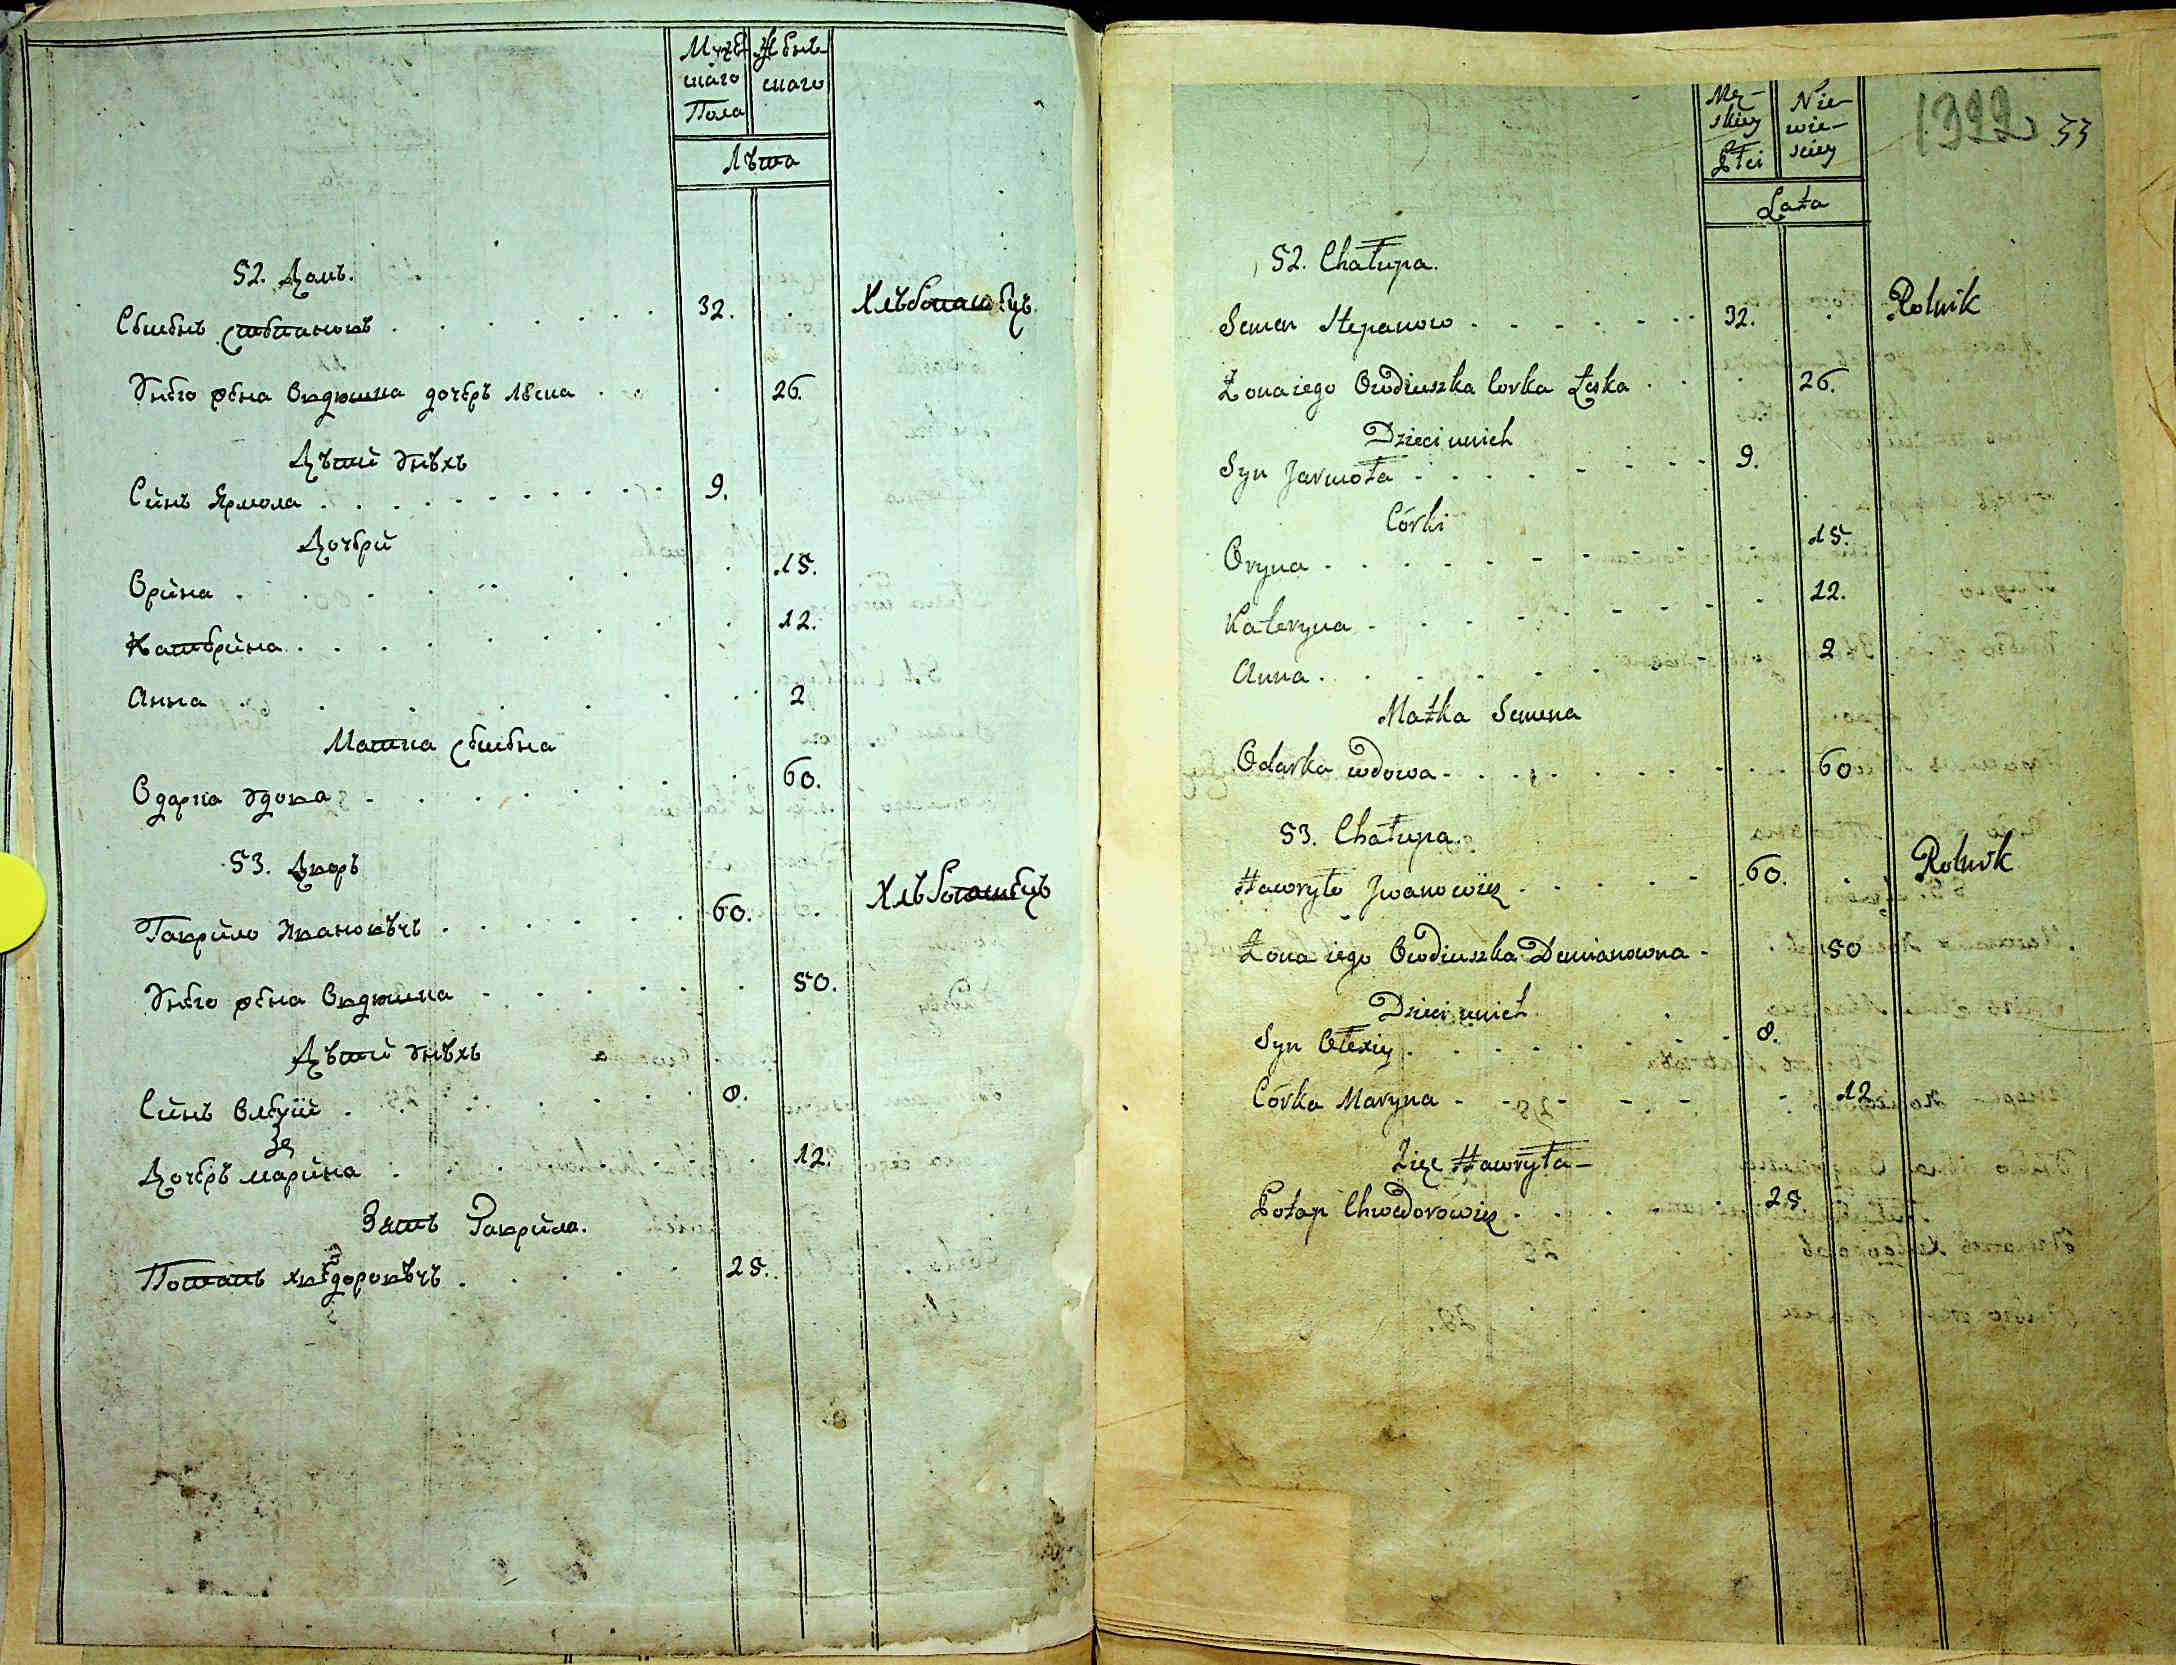 Мужес Женс
скаго скаго
Пола
Лѣта
52. Домъ.
Семенъ Степановъ . . . . . . . 32. . Хлѣбопашецъ.
Унего жена Овдюшка дочеръ Леска . . . 26.
Дѣтий Унѣхъ
Синъ Ярмола . . . . . . . . . 9.
Дочерй
Орйна . . . . . . . 15.
Катерйна . . . . . . . 12.
Анна . . . . . . 2
Матка Семена
Одарка Удова . . . . . . . . 60.
53. Дворъ
Гаврйло Ивановѣчъ . . . . . . 60. . Хлѣбопашецъ
Унего жена Овдюшка . . . . . . 50.
Дѣтий Унѣхъ
Сйнъ Олеѯiй . . . . . . 8.
Дочеръ марйна . . . . . . . 12.
Зять Гаврйла.
Потапъ хведоровѣчъ . . . . . 25.
Mę- Nie-
skiey wie-
Płci sciey
Lata
1322 33
52. Chałupa.
Semen Stepanow . . . . . . . 32. . Rolnik
Żona iego Owdiuszka Corka Łeska . . . 26.
Dzieci unich
Syn Jarmoła . . . . . . . . 9.
Córki
Oryna . . . . . . . . . 15.
Kateryna . . . . . . . . . 12.
Anna . . . . . . . 2
Matka Semena
Odarka wdowa . . . . . . . . . 60
53. Chałupa.
Hawryło Jwanowicz . . . . . 60. . Rolnik
Żona iego Owdiuszka Demianowna . 50
Dzieci unich
Syn Ołexiy . . . . . . . . 8.
Córka Maryna - - - - - - - 12
Zięć Hawryła -
Potap Chwedorowicz . . . . . 25.